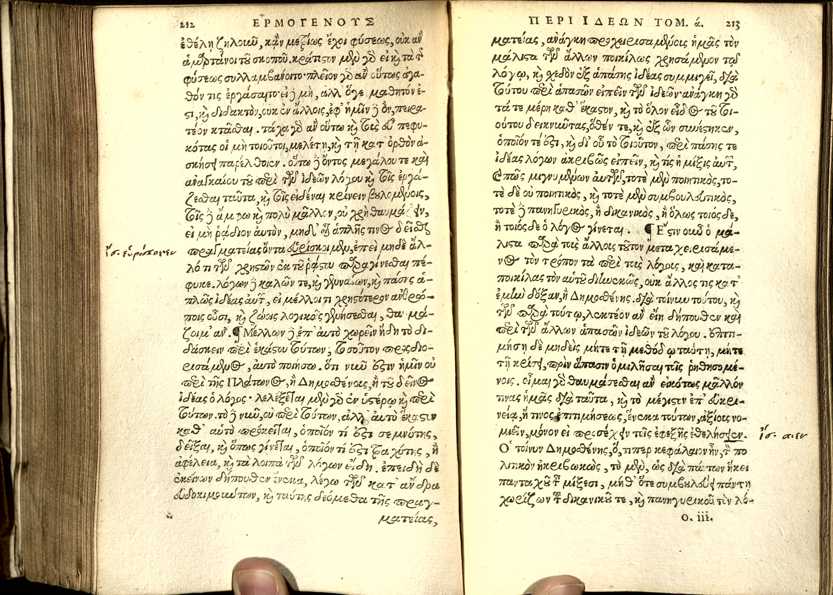 212 ΕΡΜΟΓΕΝΟΥΣ
ἐθέλῃ ζηλοῦν, κἂν μετρίως ἔχοι φύσεως, οὐκ ἂν
ἁμαρτάνοι τοῦ σκοποῦ. κράτιστον μὲν γὰρ εἰ καὶ τὰ τῆς
φύσεως συλλαμβάνοιτο· πλεῖον γὰρ ἂν οὕτως ἀγα-
θόν τις ἐργάσαιτο· εἰ δὲ μὴ, ἀλλ' ὅγε μαθητόν ἐ-
στι, καὶ διδακτὸν, οὐκ ἐν ἄλλοις, ἐφ' ἡμῖν δ' ὂν, πειρα-
τέον κτᾶσθαι. τάχα γὰρ ἂν οὕτω καὶ τοὺς εὖ πεφυ-
κότας οἱ μὴ τοιοῦτοι, μελέτῃ, καὶ τῇ κατ' ὀρθὸν ἀ-
σκήσει παρέλθοιεν. οὕτω δ' ὄντος μεγάλου τε καὶ
ἀναγκαίου τοῦ περὶ τῶν ἰδεῶν λόγου καὶ τοῖς ἐργά-
ζεσθαι ταῦτα, καὶ τοῖς εἰδέναι κρίνειν βουλομένοις,
τοῖς δ' ἄμφω καὶ πολὺ μᾶλλον, οὐ χρὴ θαυμάζειν,
εἰ μὴ ῥάδιον αὐτὸν, μηδ' ἁπλῆς τινος δεῖσθαι
πραγματείας ὄντα εὑρίσκοιμεν, ἐπεὶ μηδὲ ἄλ-
λό τι τῶν χρηστῶν ἐκ τοῦ ῥᾴστου παραγίνεσθαι πέ-
φυκε. λόγων δὲ καλῶν τε, καὶ γενναίων, καὶ πάσης ἁ-
πλῶς ἰδέας αὐτῶν, εἰ μέλλοι τι χρηστότερον ἀνθρώ-
ποις οὖσι, καὶ ζώοις λογικοῖς γενήσεσθαι, θαυμά-
ζοιμ' ἄν. ¶ Μέλλων δ' ἐπ' αὐτὸ χωρεῖν ἤδη τὸ δι-
δάσκειν περὶ ἑκάστου τούτων, τοσοῦτον προσδιο-
ρισάμενος, αὐτὸ ποιήσω. ὅτι νῦν ἐστὶν ἡμῖν οὐ
περὶ τῆς Πλάτωνος, ἢ Δημοσθένους, ἢ τοῦ δεῖνος
ἰδέας ὁ λόγος· λελέξεται μὲν γὰρ ἐν ὑστέρῳ καὶ περὶ
τούτων. τὸ δὲ νῦν, οὐ περὶ τούτων. ἀλλ' αὐτὸ ἕκαστον
καθ' αὑτὸ πρόκειται, ὁποῖόν τί ἐστι σεμνότης,
δεῖξαι, καὶ ὅπως γίνεται, ὁποῖόν τί ἐστι τραχύτης, ἢ
ἀφέλεια, καὶ τὰ λοιπὰ τῶν λόγων εἴδη. ἐπειδὴ δὲ
ἐκείνων δήπουθεν ἕνεκα, λέγω τῶν κατ' ἄνδρα
εὐδοκιμούντων, καὶ ταύτης δεόμεθα τῆς πραγ-
ματείας,
ἴσ. εὑρίσκοιμεν
ΠΕΡΙ ΙΔΕΩΝ ΤΟΜ. ά. 213
ματείας, ἀνάγκη προχειρισαμένοις ἡμᾶς τὸν
μάλιστα τῶν ἄλλων ποικίλως χρησάμενον τῷ
λόγῳ, καὶ σχεδὸν ἐξ ἁπάσης ἰδέας συμμιγεῖ, διὰ
τούτου περὶ ἁπασῶν εἰπεῖν τῶν ἰδεῶν· ἀνάγκη γὰρ
τά τε μέρη καθ' ἕκαστον, καὶ τὸ ὅλον εἶδος τοῦ τοι-
ούτου δεικνύντας, ὅθεν τε, καὶ ἐξ ὧν συνέστηκεν,
ὁποῖόν τέ ἐστι, καὶ δι' οὗ τοιοῦτον, περὶ πάσης τε
ἰδέας λόγων ἀκριβῶς εἰπεῖν, καὶ τίς ἡ μίξις αὐτῶν,
ὅπως μιγνυμένων αὐτῶν, τοτὲ μὲν ποιητικὸς, το-
τὲ δὲ οὐ ποιητικὸς, καὶ τοτὲ μὲν συμβουλευτικὸς,
τοτὲ δὲ πανηγυρικὸς, ἢ δικανικὸς, ἢ ὅλως τοιόσδε,
ἢ τοιόσδε ὁ λόγος γίνεται. ¶ Ἔστιν οὖν ὁ μά-
λιστα παρὰ τοὺς ἄλλους τοῦτον μεταχειρισάμε-
νος τὸν τρόπον τὰ περὶ τοὺς λόγους, καὶ κατα-
ποικίλας τὸν αὐτοῦ διηνεκῶς, οὐκ ἄλλος τις κατ'
ἐμὴν δόξαν, ἢ Δημοσθένης. διὰ τοίνυν τούτου, καὶ
τῶν παρὰ τούτῳ, λεκτέον ἂν εἴη δήπουθεν καὶ
περὶ τῶν ἄλλων ἁπασῶν ἰδεῶν τοῦ λόγου. ἐπιτι-
μήσῃ δὲ μηδεὶς μήτε τῇ μεθόδῳ ταύτῃ, μήτε
τῇ κρίσει, πρὶν ἅπασιν ὁμιλῆσαι τοῖς ῥηθησομέ-
νοις. οἶμαι γὰρ θαυμάσεσθαι ἂν εἰκότως μᾶλλόν
τινας ἡμᾶς διὰ ταῦτα, καὶ τὸ μέγιστον ἐπ' εὐκρι-
νείᾳ, ἤ τινος ἐπιτιμήσεως, ἕνεκα τούτων, ἀξίους νο-
μιεῖν, μόνον εἰ προσέχειν τοῖς ἐφεξῆς ἐθελήσειεν.
Ὁ τοίνυν Δημοσθένης, ὅ, τι περ κεφάλαιον ἦν, τὸν πο-
λιτικὸν ἠκριβωκὼς, τὸ μὲν, ὡς διὰ πάντων ἥκει
πανταχοῦ τῇ μίξει, μήθ' ὅτε συμβουλεύοι πάντη
χωρίζων τοῦ δικανικοῦ τε, καὶ πανηγυρικοῦ τὸν λό-
O. iii.
ἴσ. σειεν